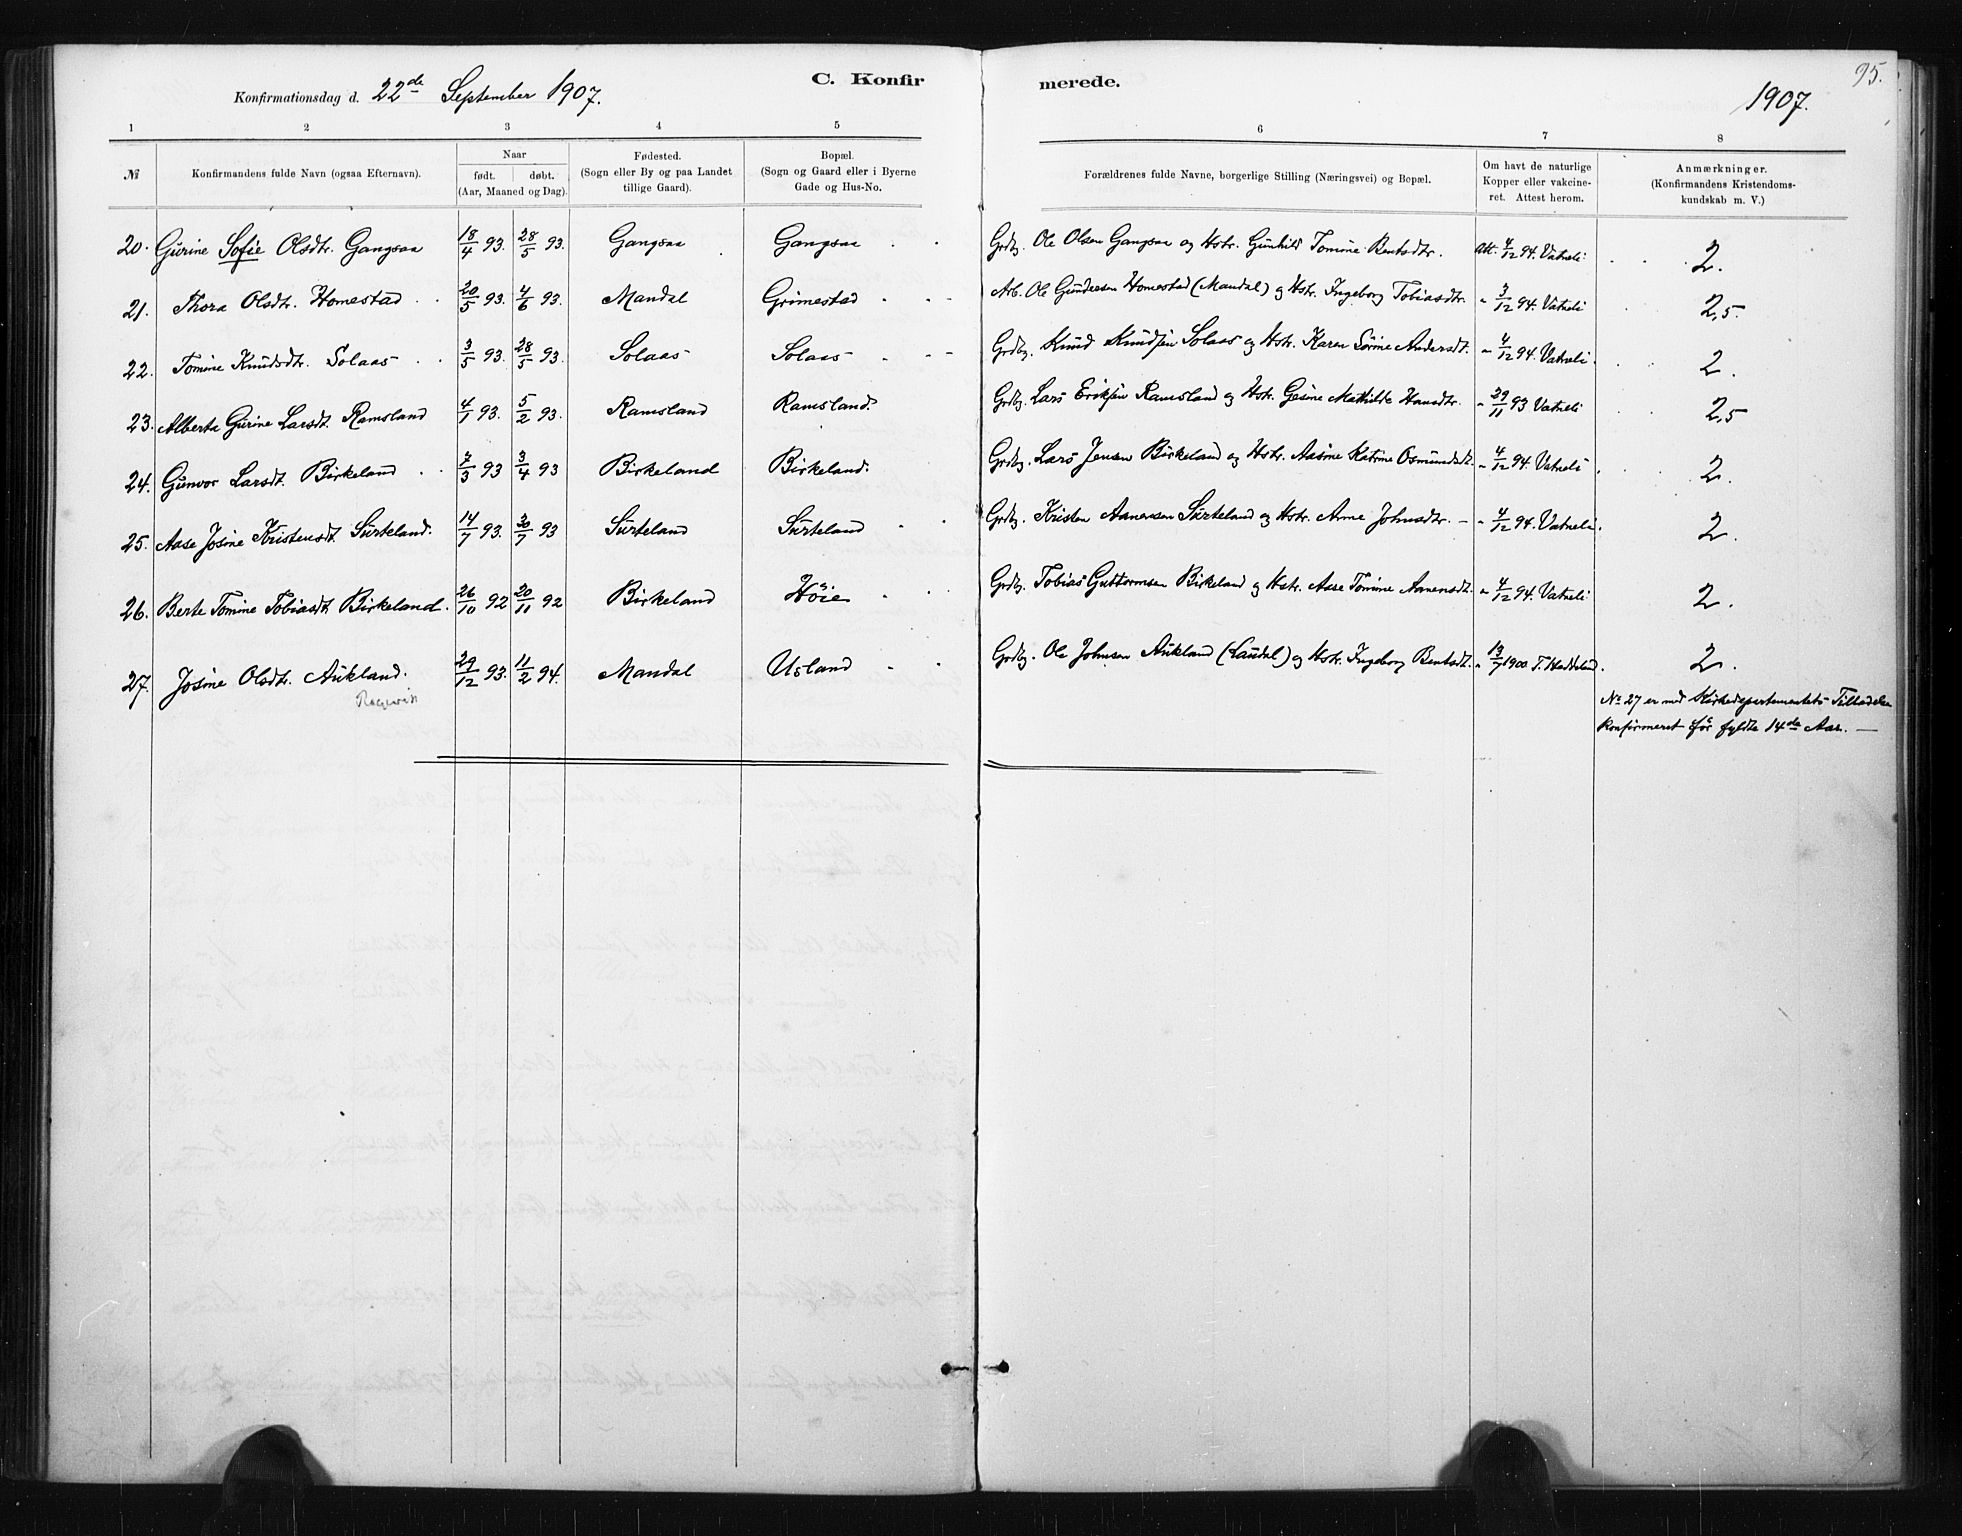 95.
C. Konfirmerede.
Konfirmationsdag d. 22de September 1907.
1907.
1 2 3 4 5 6 7 8
№
Konfirmandens fulde Navn (ogsaa Efternavn).
Naar
født. døbt.
(Aar, Maaned og Dag).
Fødested.
(Sogn eller By og paa Landet
tillige Gaard).
Bopæl.
(Sogn og Gaard eller i Byerne
Gade og Hus-No.
Forældrenes fulde Navne, borgerlige Stilling (Næringsvei) og Bopæl.
Om havt de naturlige
Kopper eller vakcine-
ret. Attest herom.
Anmærkninger.
(Konfirmandens Kristendoms-
kundskab m. V.)
20. Gurine Sofie Olsdtr. Gangsaa 18/4 93. 28/5 93. Gangsaa Gangsaa Grdbg. Ole Olsen Gangsaa og Hstr. Gunhild Tomine Bentsdtr. Att. 4/12 94. Vatneli 2.
21. Thora Olsdtr. Homestad 20/5 93. 4/6 93. Mandal Grimestad Arb. Ole Gundersen Homestad (Mandal) og Hstr. Ingeborg Tobiasdtr. " 3/12 94. Vatneli 2,5.
22. Tomine Knudsdtr. Solaas 3/5 93. 28/5 93. Solaas Solaas Grdbg. Knud Knudsen Solaas og Hstr. Karen Sørine Andersdt. " 4/12 94. Vatneli. 2.
23. Alberta Gurine Larsdt. Ramsland 4/1 93. 5/2 93. Ramsland Ramsland. Grdbg. Lars Eriksen Ramsland og Hstr. Gesine Mathilde Hansdtr. " 29/11 93 Vatneli 2,5
24. Gunvor Larsdt. Birkeland 7/3 93 3/4 93 Birkeland Birkeland. Grdbg. Lars Jensen Birkeland og Hstr. Aasine Katrine Osmundsdt. " 4/12 94. Vatneli 2.
25. Aase Josine Kristensdt. Surteland. 14/7 93. 30/7 93 Surteland Surteland Grdbg. Kristen Aanensen Surteland og Hstr. Anne Johnsdtr. — " 4/12 94. Vatneli. 2.
26. Berte Tomine Tobiasdt. Birkeland. 26/10 92 20/11 92 Birkeland Høie Grdbg. Tobias Guttormsen Birkeland og Hstr. Aase Tomine Aanensdt. " 4/12 94. Vatneli 2.
27. Josine Olsdtr. Aukland. 29/12 93. 11/2 94. Mandal Usland Grdbg. Ole Johnsen Aukland (Laudal) og Hstr. Ingeborg Bentsdt. " 13/7 1900 T. Haddeland. 2.
No 27 er med Kirkedepartementets Tilladelse
konfirmeret før fyldte 14de Aar. —